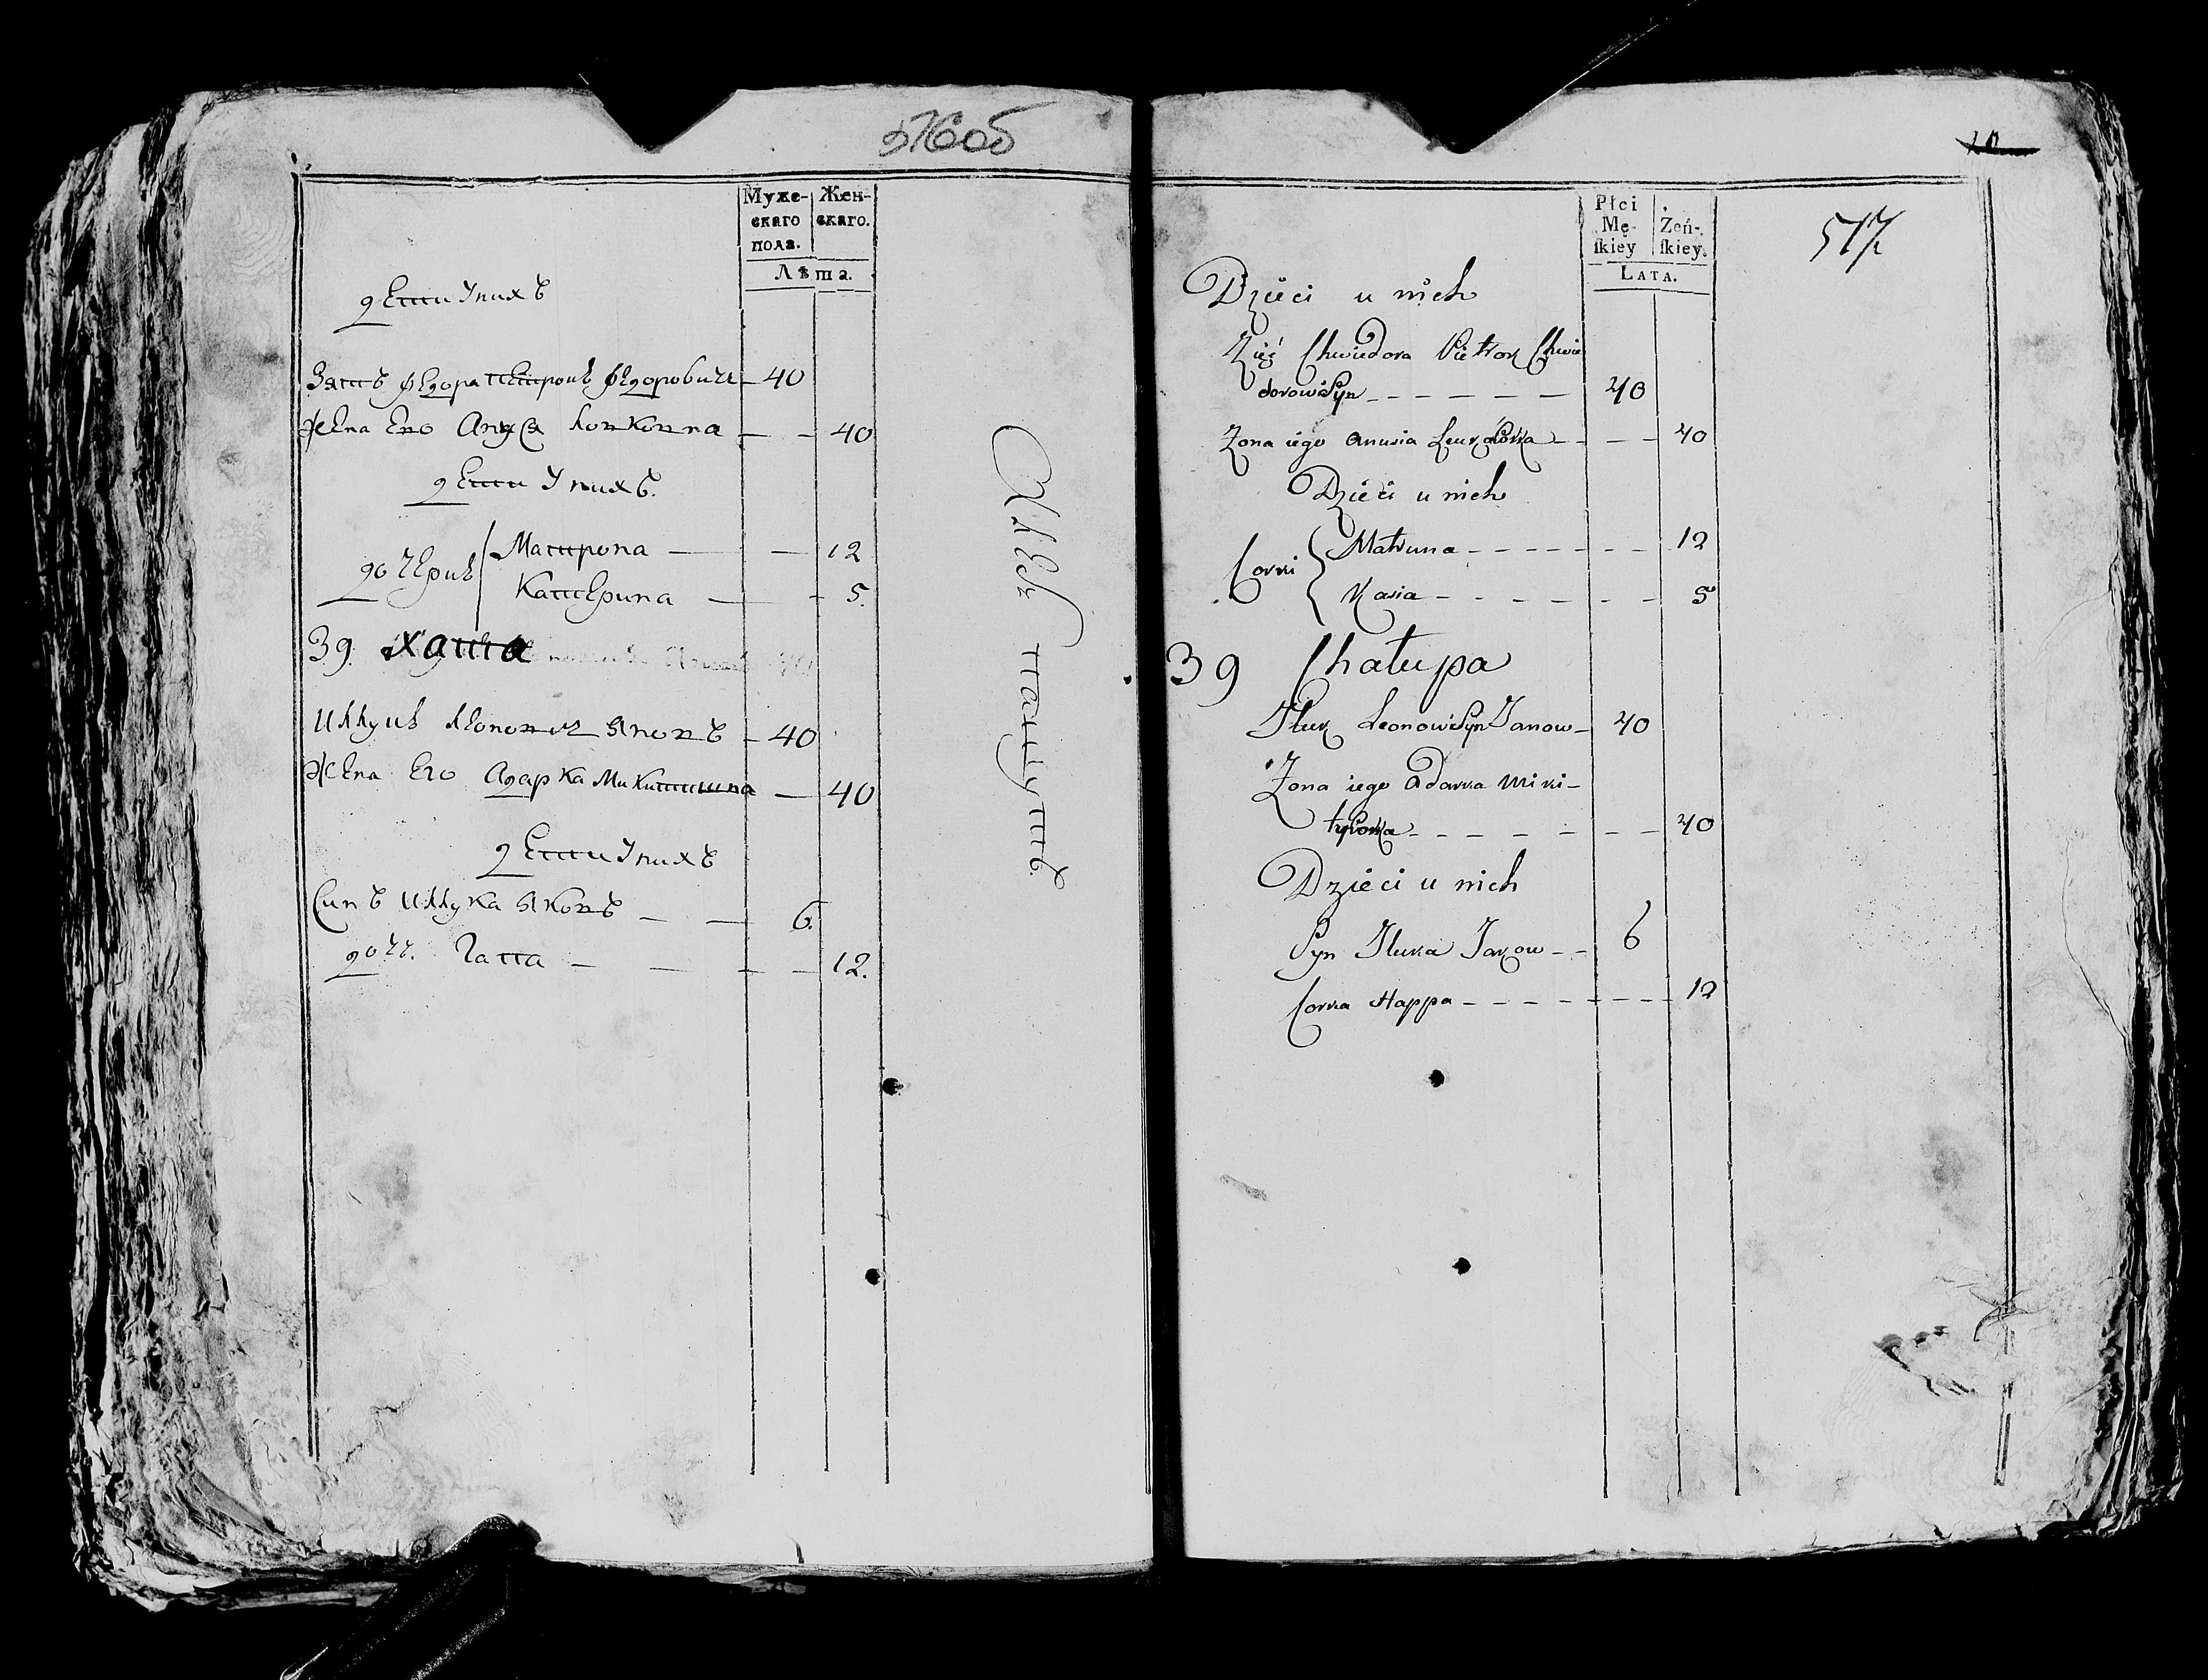 516об
Муже-
скаго
пола.
Жен-
скаго.
Лѣта.
дети у нихъ
Зять Федора Петронь Федоровичъ — 40
Жена его Ануся — — 40
дети у нихъ.
дочери
Матрона — — 12
Катерина — — 5.
39. хата
Илуць Леоновъ Яновъ — 40
Жена его Адарка Микитишна — 40
дети у нихъ
Синъ Илука Яковъ — — 6.
дочь. Гапа — — — — 12.
517
Płci
Mę-
ſkiey
Żeń-
ſkiey.
LATA.
Dzieci u nich
Zięć Chwiedora Pietrok Chwie
dorow Syn — — — — — — 40
Żona iego Anusia — — — — 40
Dzieci u nich
Corki
Matruna — — — — — — — 12
Kasia — — — — — — 5
39 Chałupa
Iluk Leonow Syn Janow — 40
Żona iego Adarka Miki-
tyCorka — — — — — — — 40
Dzieci u nich
Syn Iluka Jakow — — 6
Corka Happa — — — — — — — — 12